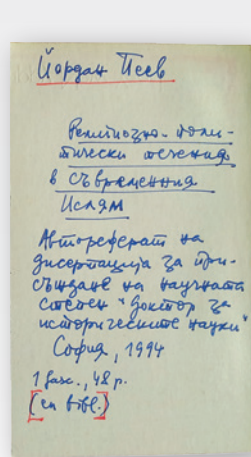 Йордан Пеев
Религиозно-поли-
тически течения
в съвременния
Ислям
Автореферат на
дисертация за при-
съждане на научната
степен "доктор за
историческите науки"
София, 1994
1 fasc., 48 p.
(en bibl.)